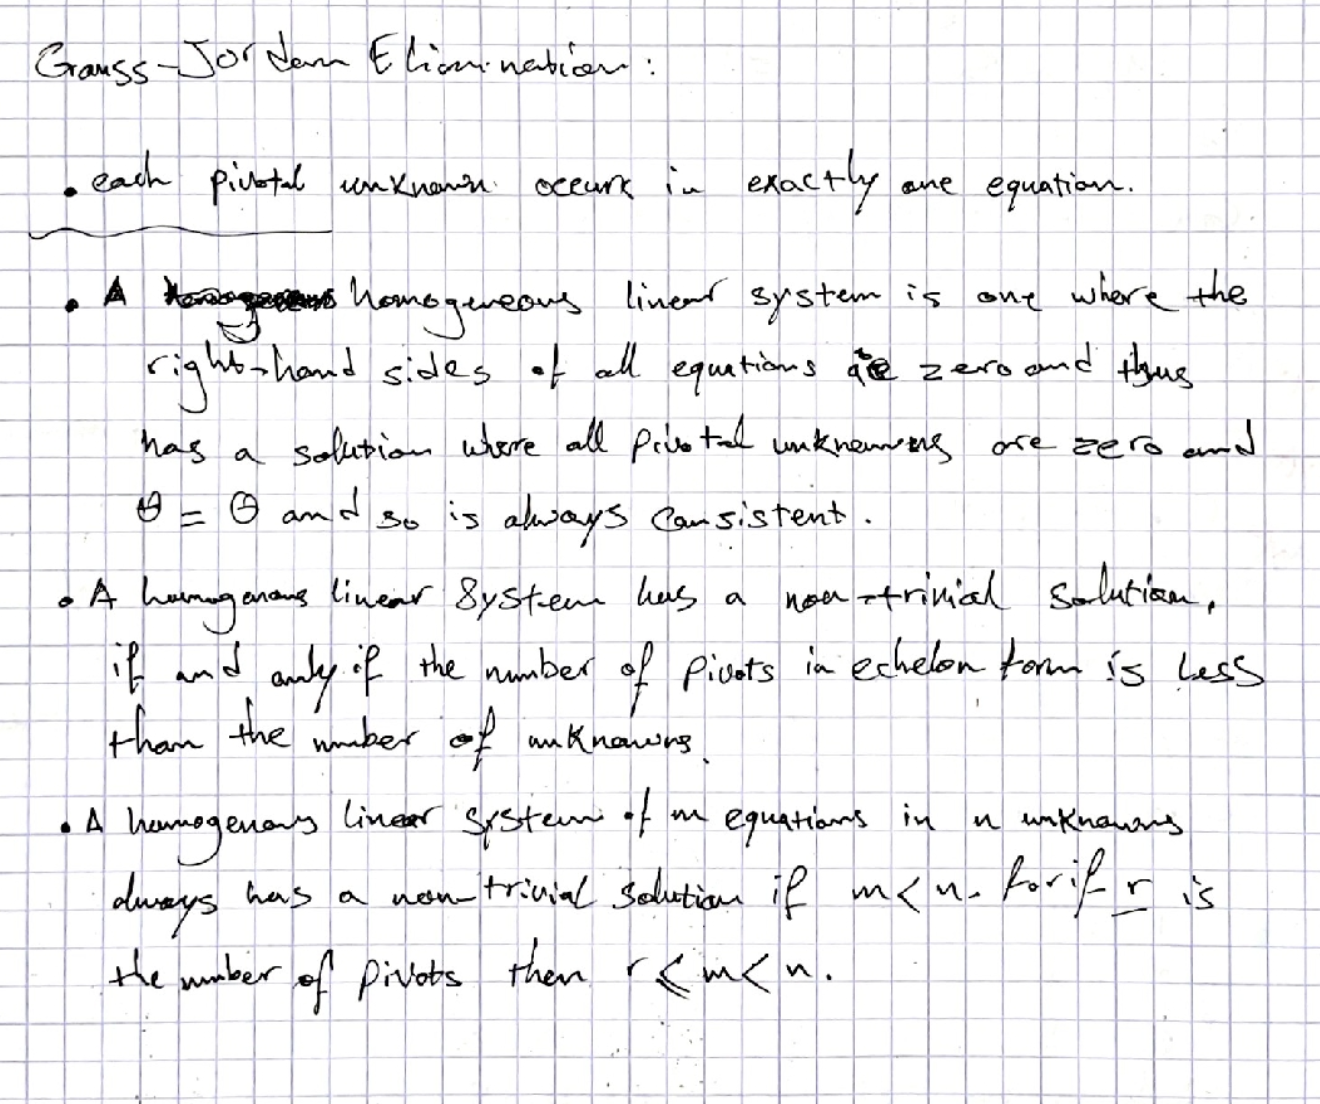 Gauss-Jordan Elimination:
• each pivotal unknown occurs in exactly one equation.
• A homogeneous linear system is one where the
right-hand sides of all equations are zero and thus
has a solution where all pivotal unknowns are zero and
θ = θ and so is always consistent.
• A homogenous linear system has a non-trivial solution,
if and only if the number of pivots in echelon form is less
than the number of unknowns.
• A homogenous linear system of m equations in n unknowns
always has a non-trivial solution if m < n. for if r is
the number of pivots then r ⩽ m < n.